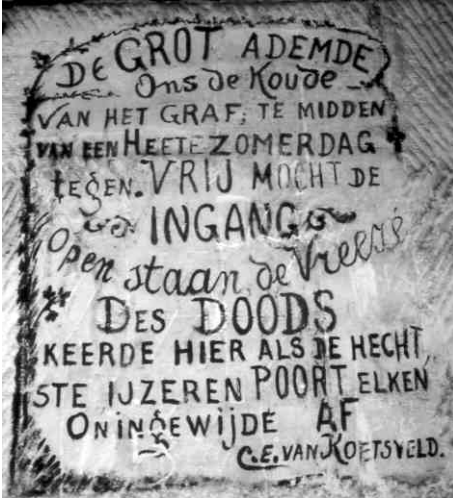 DE GROT ADEMDE
Ons de Koude
VAN HET GRAF, TE MIDDEN
VAN EEN HEETE ZOMERDAG
tEGEN. VRIJ MOCHT DE
INGANG
Open staan, de Vreeze
DES DOODS
KEERDE HIER ALS DE HECHT,
STE IJZEREN POORT ELKEN
ONINGEWIJDE AF
C.E. VAN KOETSVELD.